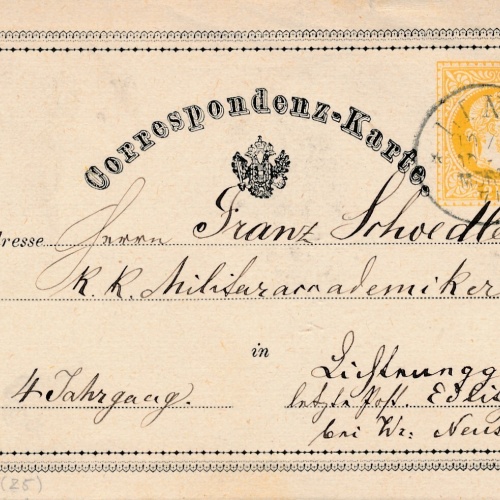 Correspondenz-Karte.
dresse Herrn Franz Schoedl
k. k. Militärakademiker
in
4 Jahrgang.
letzte Post.
bei Wr: Neus
(25)